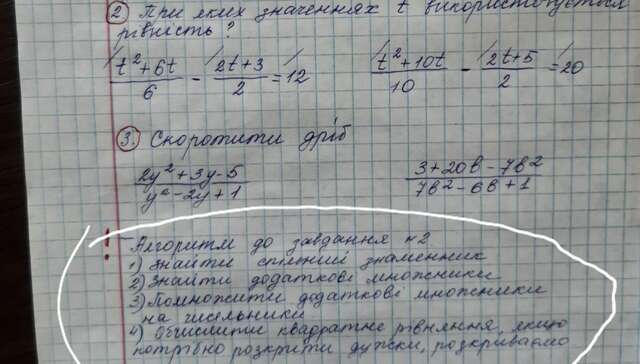 2 При яких значеннях t використовується
рівність?
t²+6t/6 - 2t+3/2 = 12 t²+10t/10 - 2t+5/2 = 20
3. Скоротити дріб
2y²+3y-5/y²-2y+1 3+20b-7b²/7b²-6b+1
! Алгоритм до завдання №2
1) Знайти спільний знаменник
2) Знайти додаткові множники
3) Помножити додаткові множники
на чисельники
4) Обчислити квадратне рівняння, якщо
потрібно розкрити дужки, розкриваємо